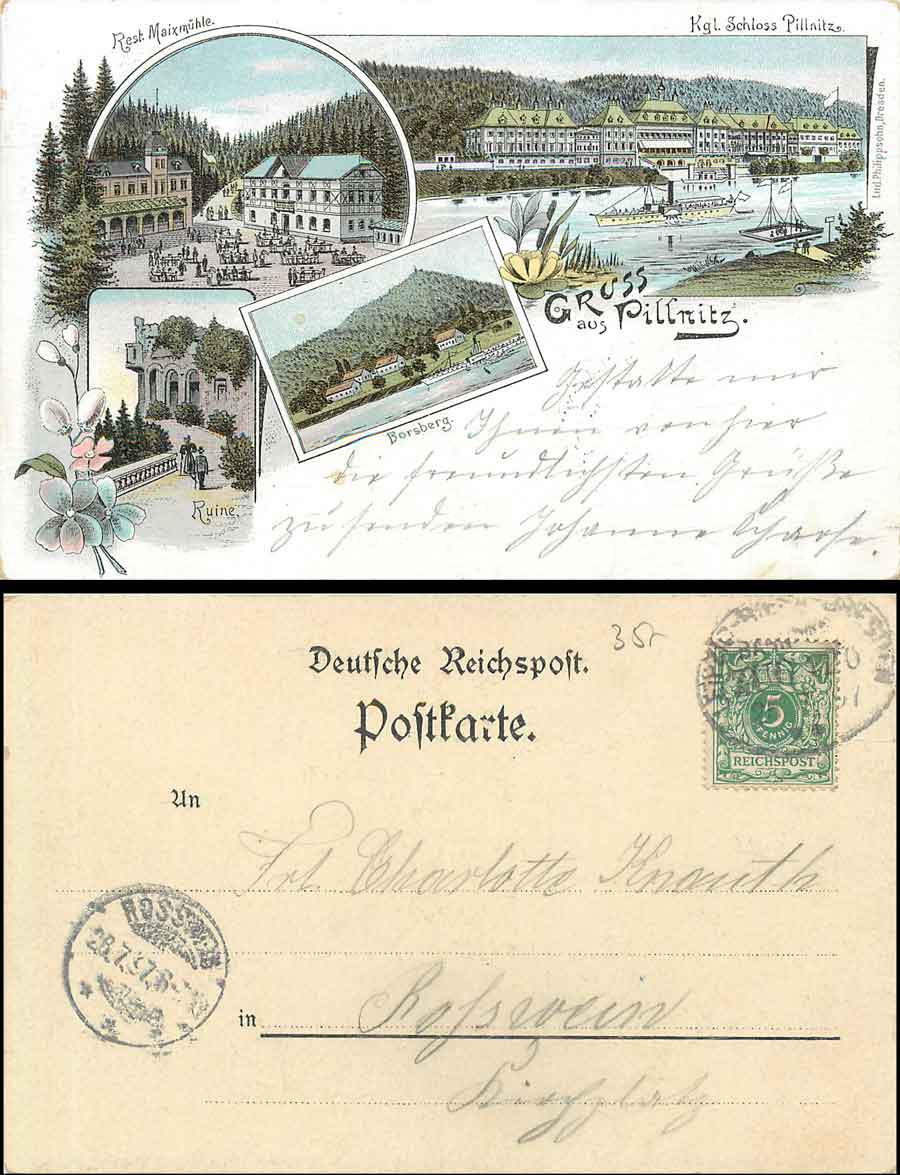 Rest. Maixmühle.
Kgl. Schloss Pillnitz.
Lud. Philippsohn, Dresden.
GRUSS
aus Pillnitz.
Borsberg.
Ruine.
Gestatte mir
Ihnen von hier
die freundlichsten Grüße
zu senden Johanne
35
Deutsche Reichspost.
Postkarte.
5
PFENNIG
REICHSPOST
An
Frl. Charlotte Knauth
ROSSWEIN
28.7.97.6
in Roßwein
Kirchplatz